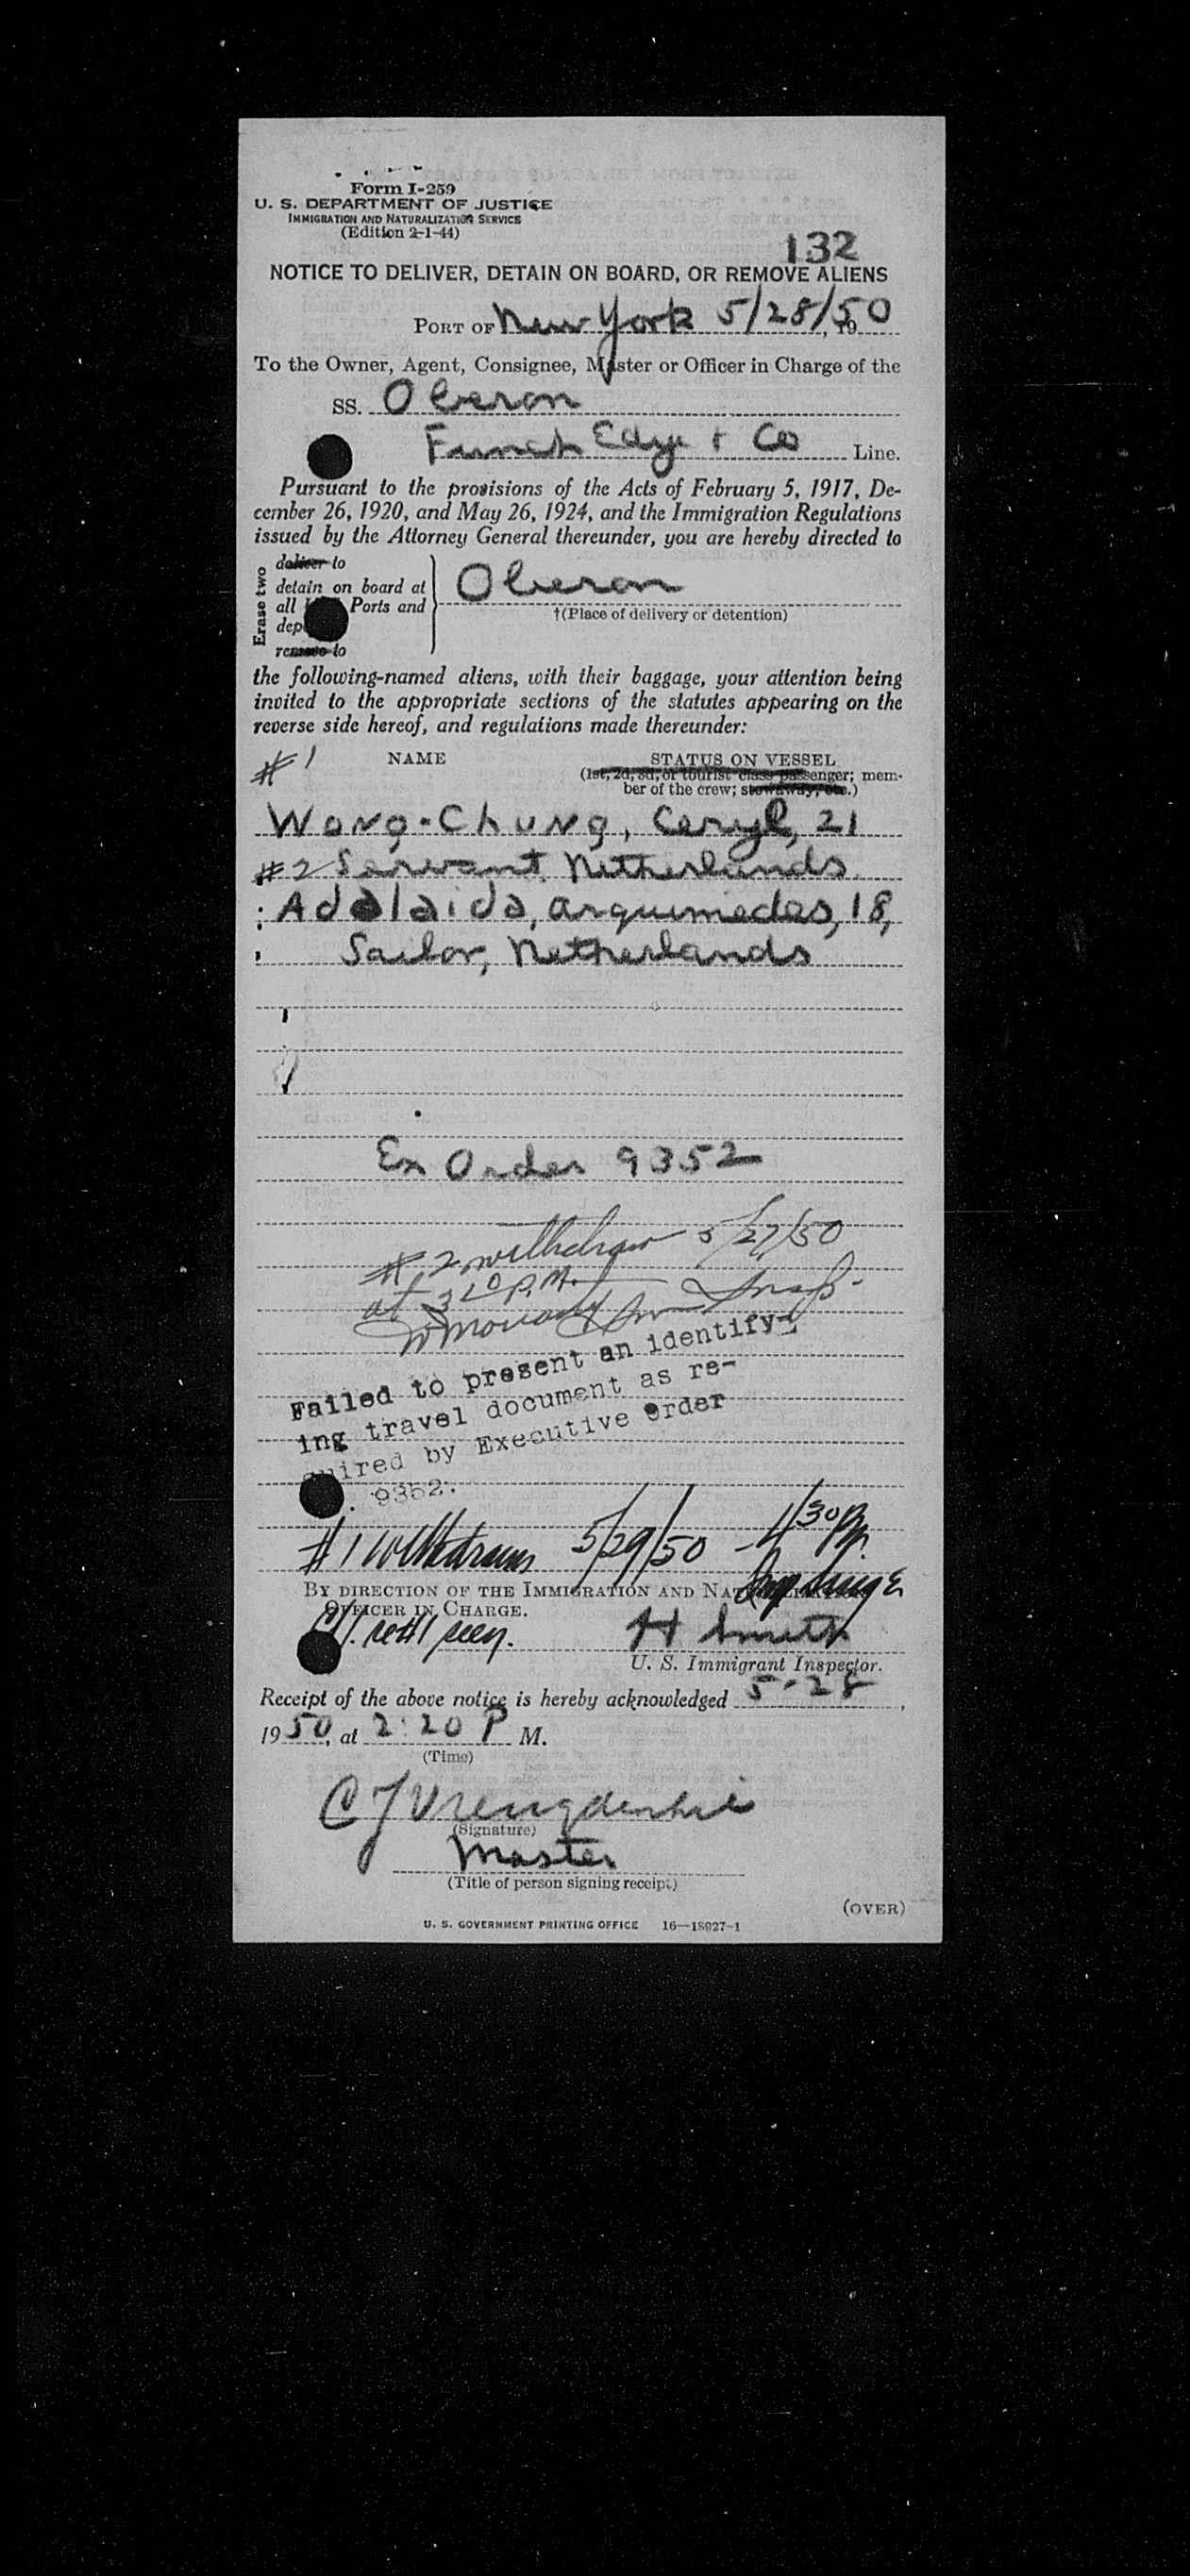 Form I-259
U. S. DEPARTMENT OF JUSTICE
IMMIGRATION AND NATURALIZATION SERVICE
(Edition 2-1-44)
132
NOTICE TO DELIVER, DETAIN ON BOARD, OR REMOVE ALIENS
PORT OF New York 5/28/, 1950
To the Owner, Agent, Consignee, Master or Officer in Charge of the
SS. Oberon
Funch Edye + Co Line.
Pursuant to the provisions of the Acts of February 5, 1917, De-
cember 26, 1920, and May 26, 1924, and the Immigration Regulations
issued by the Attorney General thereunder, you are hereby directed to
Erase two
deliver to
detain on board at
all Ports and
remove to
Oberon
†(Place of delivery or detention)
the following-named aliens, with their baggage, your attention being
invited to the appropriate sections of the statutes appearing on the
reverse side hereof, and regulations made thereunder:
#1 NAME STATUS ON VESSEL
(1st, 2d, 3d, or tourist class passenger; mem-
ber of the crew; stowaway, etc.)
Wong-Chung, Ceryl, 21
#2 Servant Netherlands
Adelaida, Arquimedes, 18,
Sailor, Netherlands
Ex Order 9352
#2 withdrawn 5/27/50
at 3 P.M.
Insp.
Failed to present an identify-
ing travel document as re-
quired by Executive Order
9352.
#1 Withdrawn 5/29/50 - 4/30 Pm.
BY DIRECTION OF THE IMMIGRATION AND
OFFICER IN CHARGE.
H Smith
U. S. Immigrant Inspector.
Receipt of the above notice is hereby acknowledged 5-28,
1950, at 2:20 P M.
(Time)
C J Vreugdenhil
(Signature)
Master
(Title of person signing receipt)
(OVER)
U. S. GOVERNMENT PRINTING OFFICE 16—18027-1